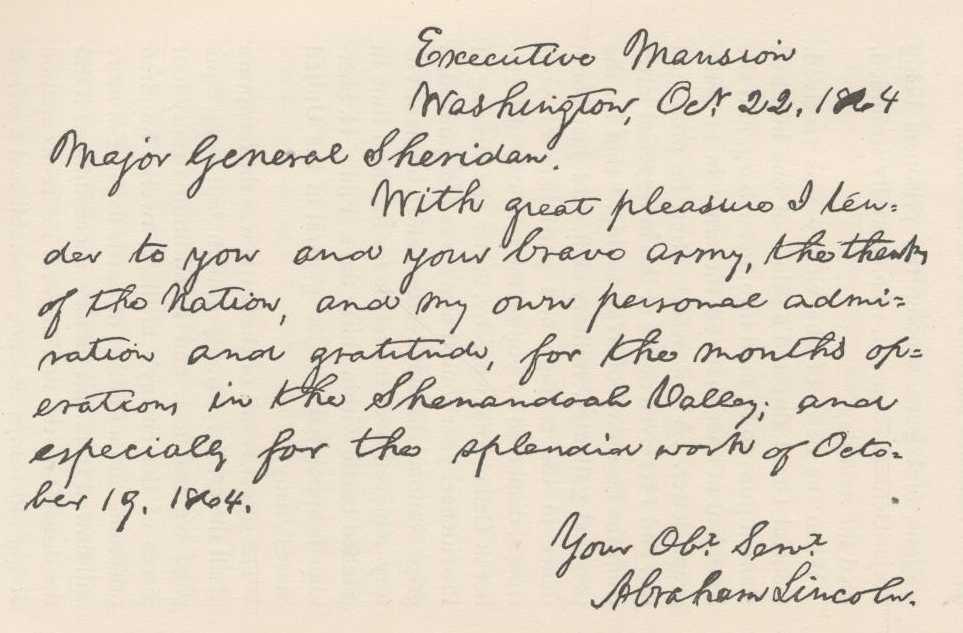 Executive Mansion
Washington, Oct. 22. 1864
Major General Sheridan.
With great pleasure I ten=
der to you and your brave army, the thanks
of the Nation, and my own personal admi=
ration and gratitude, for the months op=
erations in the Shenandoah Valley; and
especially for the splendid work of Octo=
ber 19. 1864.
Your Obt. Servt.
Abraham Lincoln.